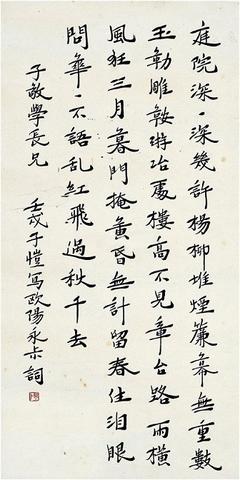 庭院深〻深幾許楊柳堆煙簾幕無重數
玉勒雕鞍遊冶處樓高不見章台路雨橫
風狂三月暮門掩黃昏無計留春住淚眼
問花〻不語乱紅飛過秋千去
子敏學長兄　壬戌子愷寫歐陽永叔詞